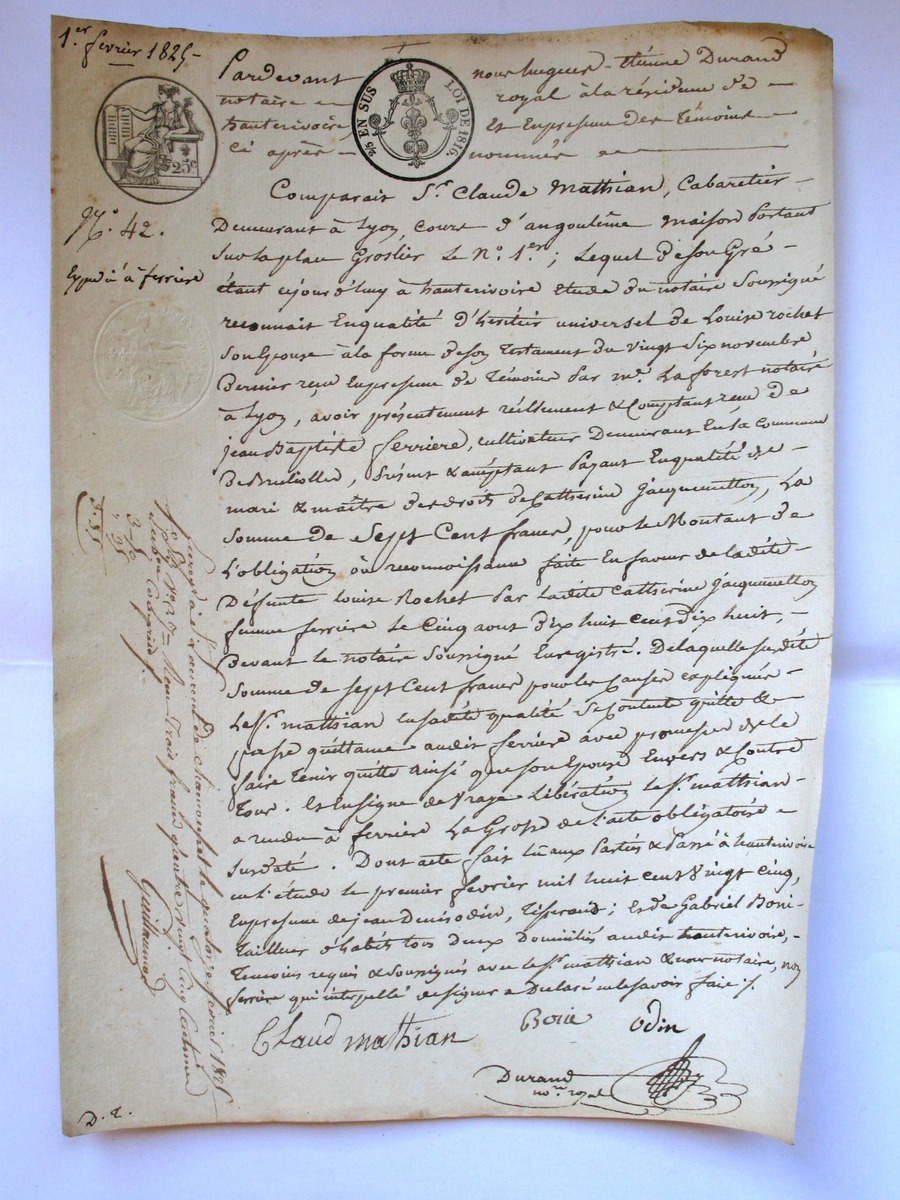 1.er fevrier 1825 -
25c
2/5 EN SUS
LOI DE 1816.
N.o 42.
Expedié à ferriere
Pardevant nous hugues - étiénne Durand
notaire royal à la résidence de
hauterivoire, Et En presence des témoins
Ci après - nommés
Comparait S.r Claude Mathian, Cabaretier
Demeurant à Lyon, cours d'angoulême maison
Sur la place Groslier Le N.o 1.er; Lequel de son Gré
étant cejourd'huy à hauterivoire Etude du notaire Soussigné
reconnait En qualité d'héritier universel de Louise rochet
Son Epouse à la forme de son testament du vingt Six novembre
Dernier reçu En presence de témoins Par m.e Laforest notaire
à Lyon, avoir présentement réellement & Comptant reçu de
jean Baptiste ferriere, cultivateur Demeurant En la Commune
De Brullioles, présent & acceptant Payant En qualité de
mari & maître des droits de Catherine jacquemetton, La
Somme de Sept Cent francs, pour le Montant de
L'obligation où reconnoissance faite En faveur de ladite
Défunte Louise Rochet Par Ladite Catherine jacquemetton
femme ferriere Le Cinq aout Dix huit cent Dix huit, -
Devant le notaire Soussigné Enregistré. De laquelle susdite
Somme de Sept Cent francs pour les Causes expliquées
Le S.r mathian En sadite qualité Se Contente quitte &
passe quittance audit ferriere avec promesse de le
faire tenir quitte ainsi que son Epouse Envers & Contre
Tous. Et En signe de vraye Libération le S.r mathian
a rendu à ferriere La Grosse de l'acte obligatoire
Susdaté. Dont acte fait lu aux Parties & Passé à hauterivoire
en l'étude le premier fevrier mil huit cent vingt cinq,
En presence de jean Denis odin, Tisserand; Et de Gabriel Boni
Tailleur d'habits tous deux Domiciliés audit hauterivoire, -
Temoins requis & Soussignés avec le S.r mathian & nous notaire, non
ferriere qui interpellé de signer a Declaré ne le savoir faire ./.
Claud mathian
odin
Durand
no.re royal
Enregistré à S.t Laurent de Chamousset le quatorze fevrier 1825
trois francs quatre vingt cinq Centimes
Guillaumot
3-50
" 35
3.85
D. E.